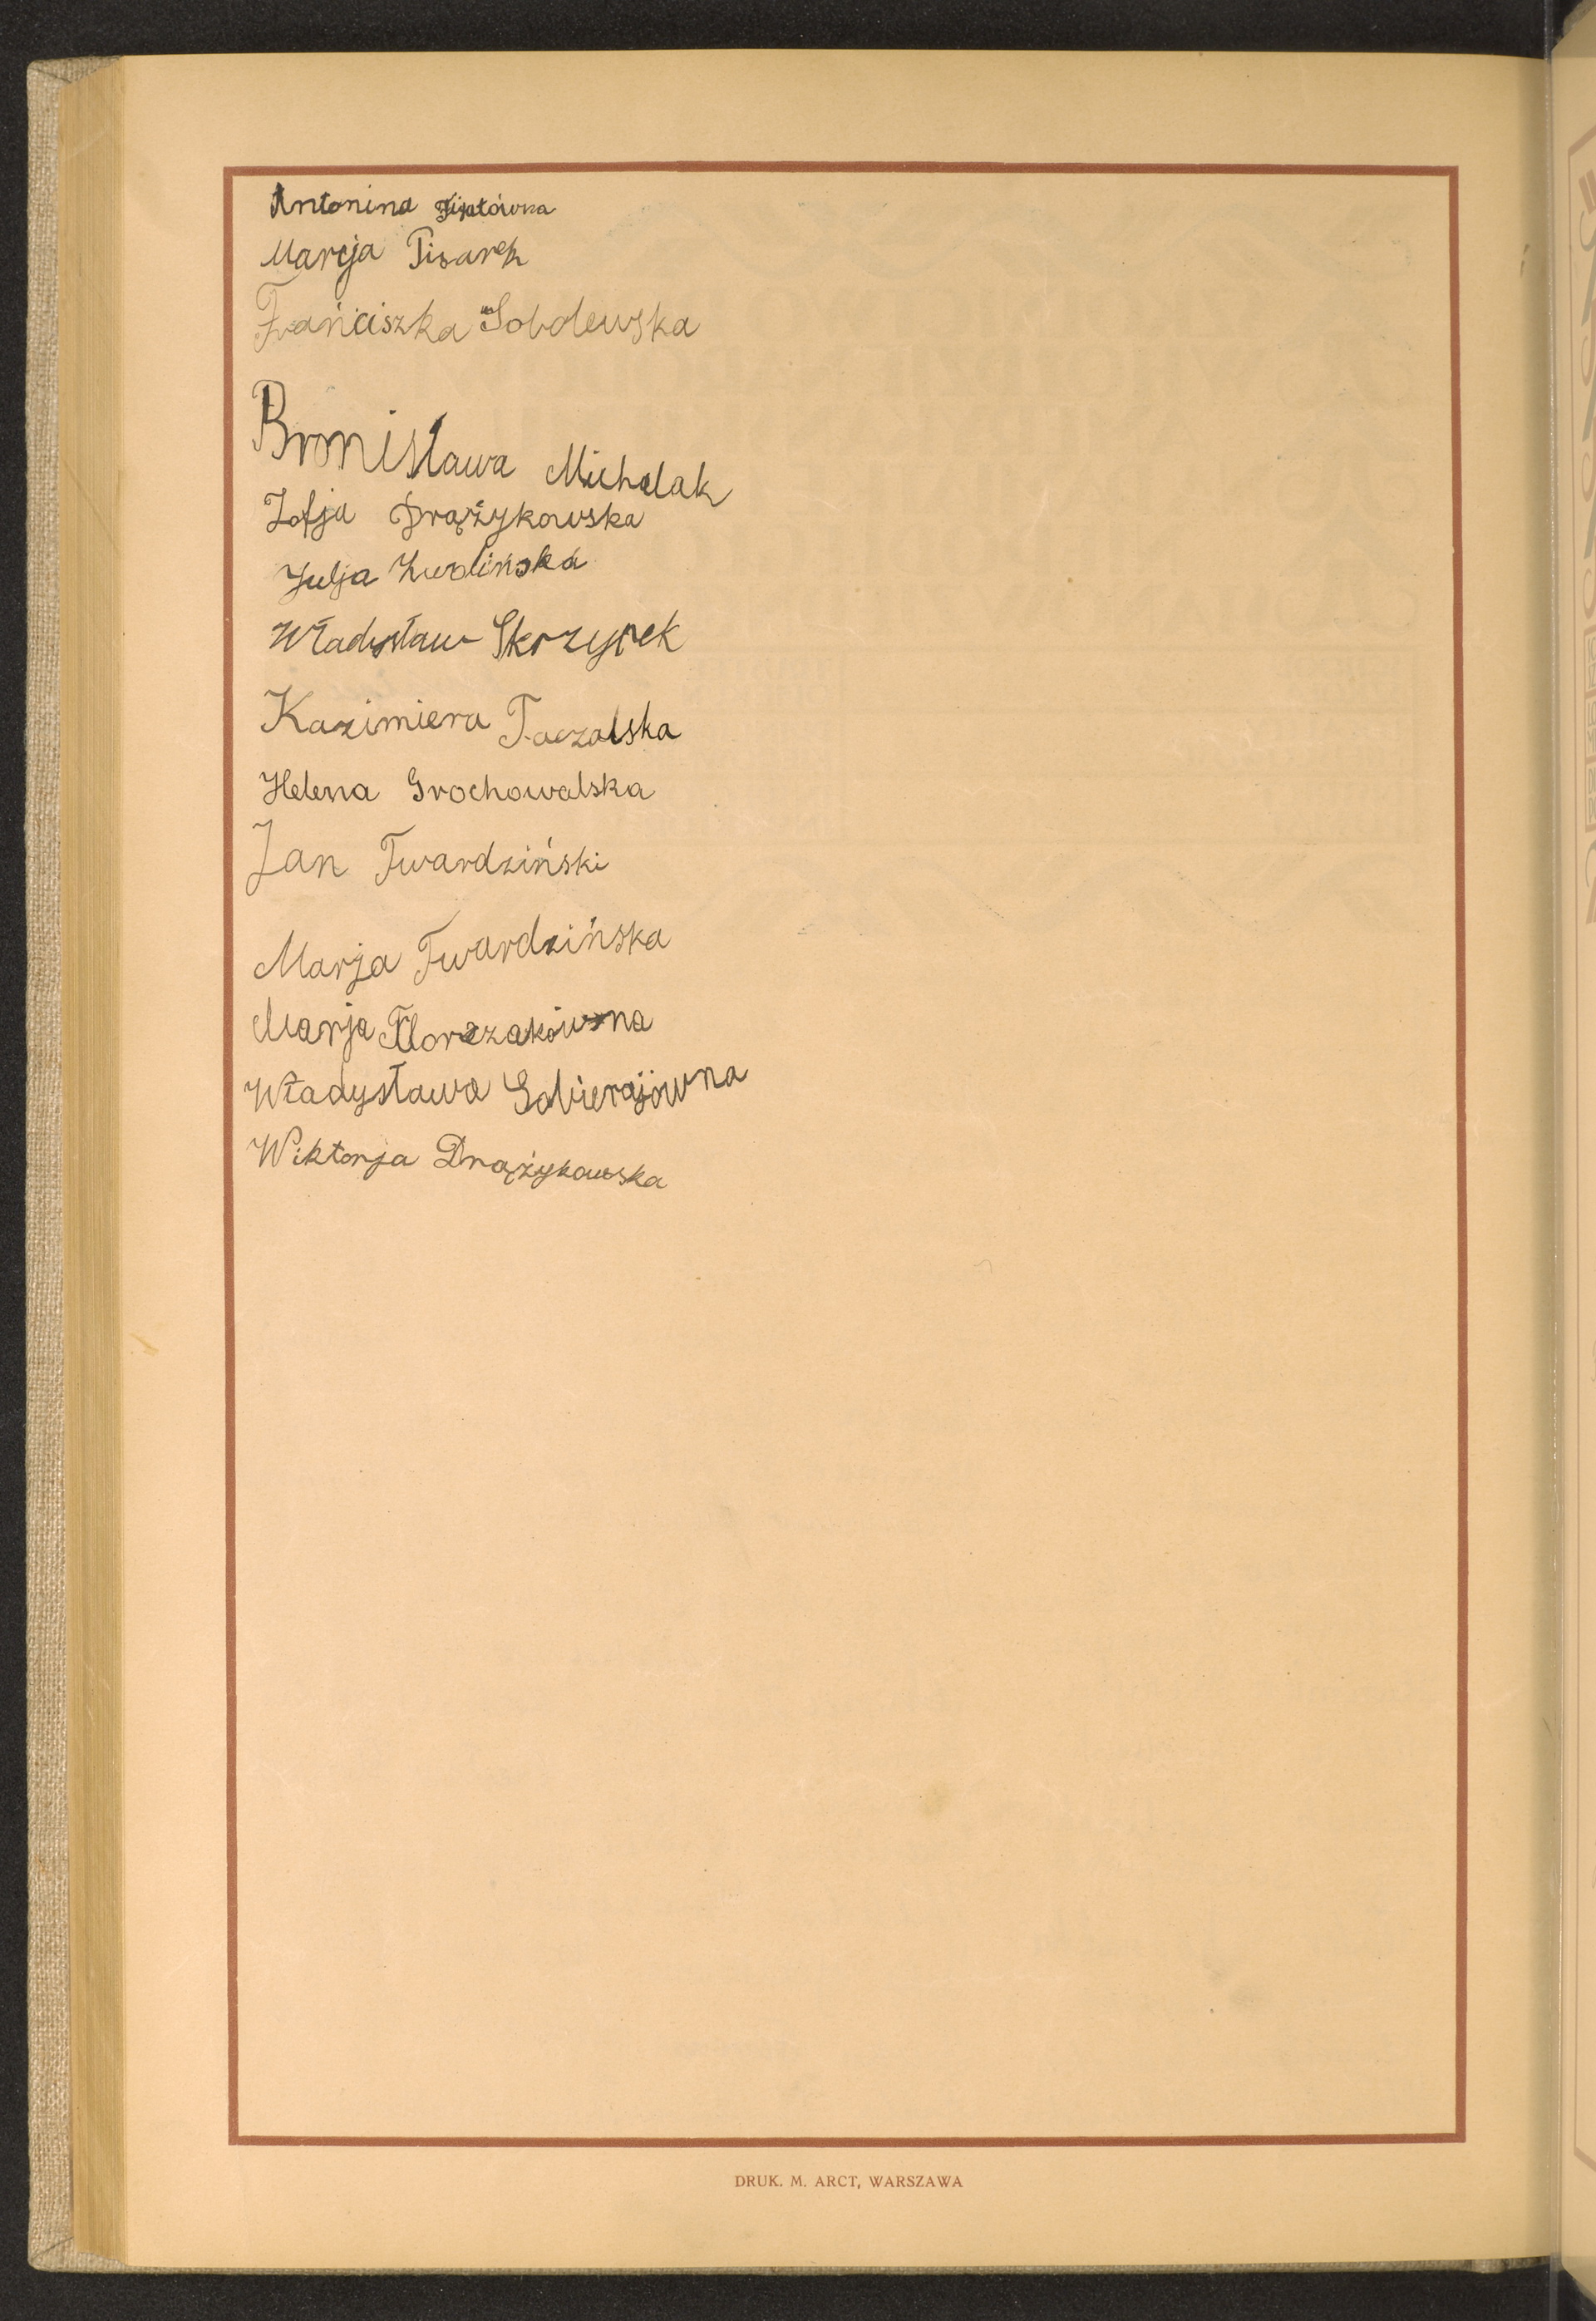 Antonina
Marcja Pisarek
Frańciszka Sobolewska
Bronisława Michalak
Zofja Drążykowska
Julja Zwolińska
Władysław Skrzypek
Kazimiera Taczalska
Helena Grochowalska
Jan Twardziński
Marja Twardzińska
Marja Florczakówna
Władysława Sobierajówna
Wiktorja Drążykowska
DRUK. M. ARCT, WARSZAWA